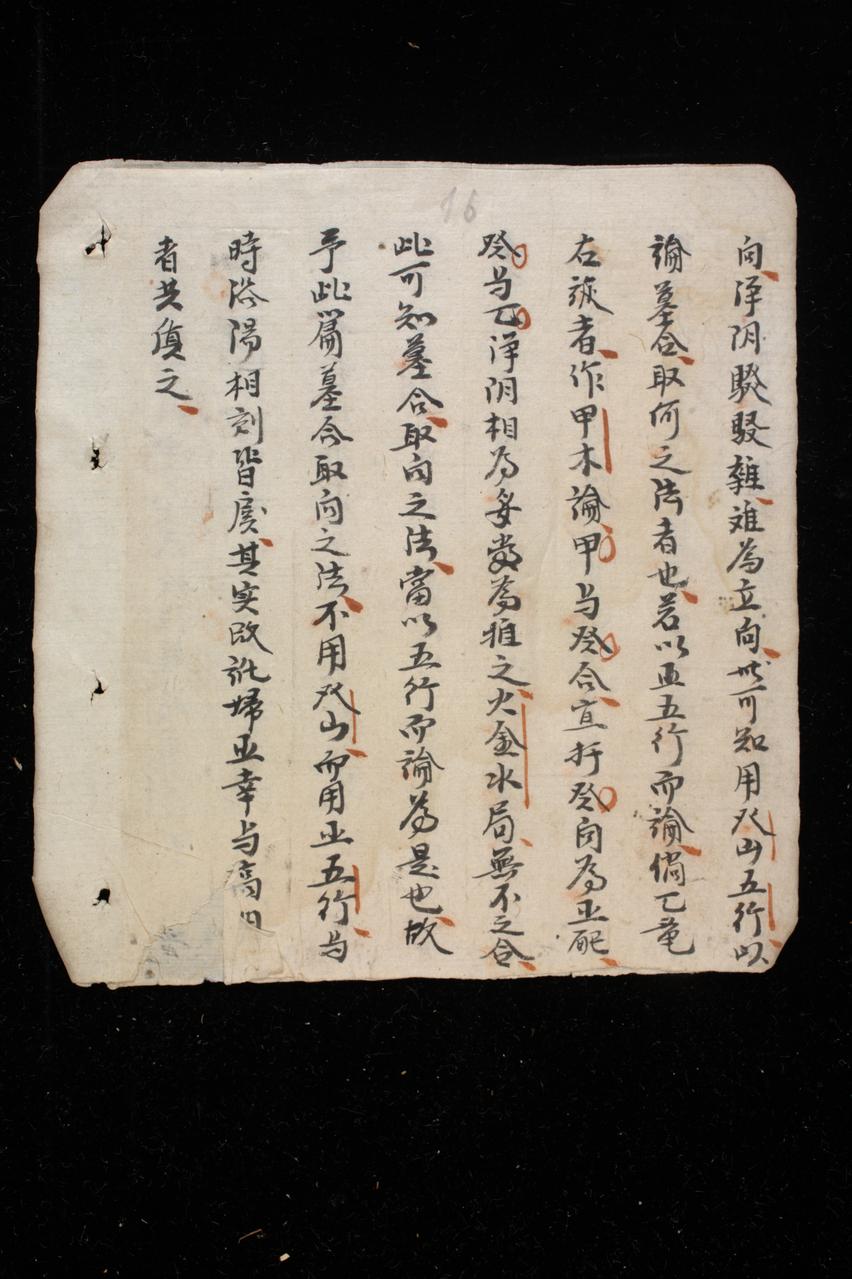 16
向净阴駁雜难為立向此可知用双山五行以
論墓合取何之法者也若以正五行而論倘乙竜
右旋者作甲木論甲与癸合宜扦癸向為正配
癸与乙净阴相為妥當為推之火金水局無不之合
此可知墓合取向之法當以五行而論為是也故
予此篇墓合取向之法不用双山而用正五行与
時俗陽相刻皆戾其实改訛歸正幸与高明
者共質之